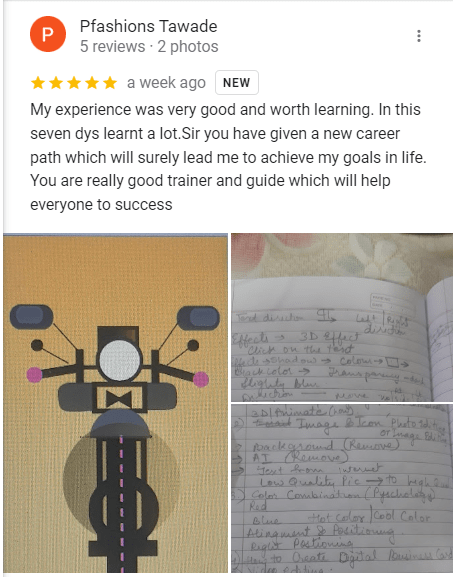 P
Pfashions Tawade
5 reviews · 2 photos
a week ago NEW
My experience was very good and worth learning. In this
seven dys learnt a lot.Sir you have given a new career
path which will surely lead me to achieve my goals in life.
You are really good trainer and guide which will help
everyone to success
Text direction Left | Right
direction
Effects → 3D Effect
Click on the Text
shadow → colour →
Black color → Transparency
Slightly blur
Direction move
3D/Animate (Text)
Image & Icon, Photo Editing
or Image Editing
Background (Remove)
AI (Remove)
Text from internet
Low Quality Pic → to high
Color Combination (Psychology)
Red
Blue Hot Color | Cool Color
Alingment & Positioning
Right Positioning
to Create Digital Business Card
Video Editing